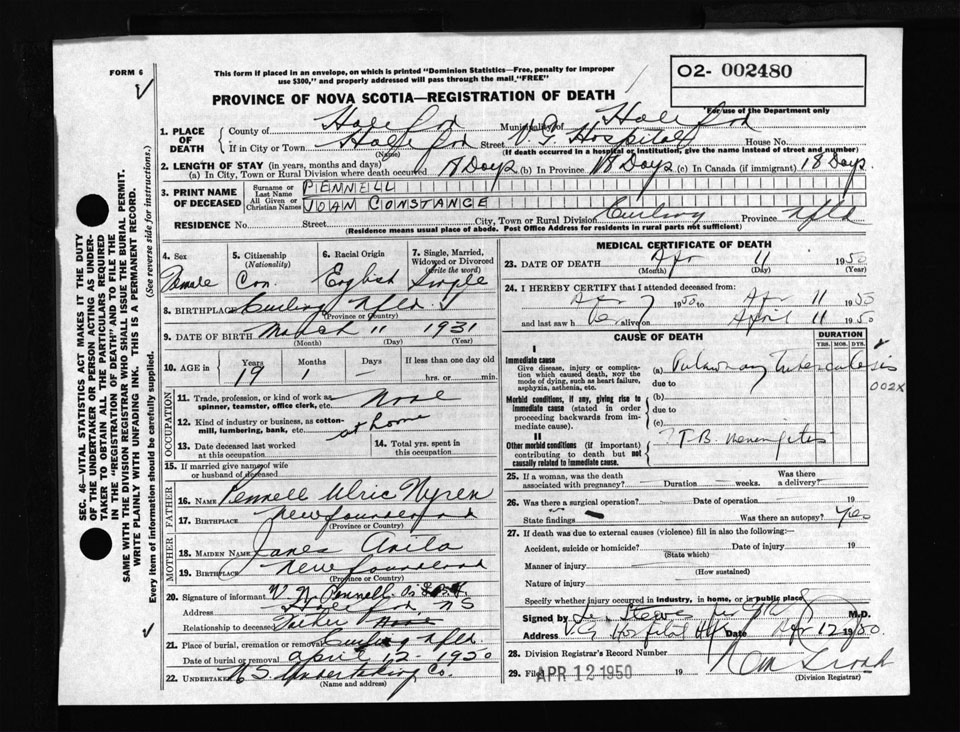 FORM 6
This form if placed in an envelope, on which is printed "Dominion Statistics—Free, penalty for improper
use $300," and properly addressed will pass through the mail, "FREE"
O2- 002480
For use of the Department only
PROVINCE OF NOVA SCOTIA—REGISTRATION OF DEATH
1. PLACE OF DEATH
County of Halifax Municipality of Halifax
If in City or Town Halifax Street V.G. Hospital House No.
(Name) (If death occurred in a hospital or institution, give the name instead of street and number)
2. LENGTH OF STAY (in years, months and days)
(a) In City, Town or Rural Division where death occurred 18 Days (b) In Province 18 Days (c) In Canada (if immigrant) 18 Days
3. PRINT NAME OF DECEASED
Surname or Last Name PENNELL
All Given or Christian Names JOAN CONSTANCE
RESIDENCE No. Street City, Town or Rural Division Curling Province Nfld
(Residence means usual place of abode. Post Office Address for residents in rural parts not sufficient)
4. Sex Female
5. Citizenship (Nationality) Can.
6. Racial Origin English
7. Single, Married, Widowed or Divorced (write the word) Single
8. BIRTHPLACE Curling Nfld.
(Province or Country)
9. DATE OF BIRTH March 11 1931
(Month) (Day) (Year)
10. AGE in Years 19 Months 1 Days — If less than one day old hrs. or min.
OCCUPATION
11. Trade, profession, or kind of work as spinner, teamster, office clerk, etc. None
12. Kind of industry or business, as cotton-mill, lumbering, bank, etc. at home
13. Date deceased last worked at this occupation
14. Total yrs. spent in this occupation
15. If married give name of wife or husband of deceased
FATHER
16. NAME Pennell Ulric Nyren
17. BIRTHPLACE Newfoundland
(Province or Country)
MOTHER
18. MAIDEN NAME Janes Anita
19. BIRTHPLACE Newfoundland
(Province or Country)
20. Signature of informant U. N. Pennell
Address Halifax, NS
Relationship to deceased Father
21. Place of burial, cremation or removal Curling Nfld.
Date of burial or removal April 12 - 1950
22. UNDERTAKER N S Undertaking Co.
(Name and address)
MEDICAL CERTIFICATE OF DEATH
23. DATE OF DEATH Apr 11 1950
(Month) (Day) (Year)
24. I HEREBY CERTIFY that I attended deceased from:
Apr 7 1950 to Apr 11 1950
and last saw her alive on April 11 1950
CAUSE OF DEATH
DURATION
YRS. MOS. DYS.
I
Immediate cause
Give disease, injury or complication which caused death, NOT the mode of dying, such as heart failure, asphyxia, asthenia, etc.
(a) Pulmonary Tuberculosis
due to
002X
Morbid conditions, if any, giving rise to immediate cause (stated in order proceeding backwards from immediate cause).
(b)
due to
(c)
II
Other morbid conditions (if important) contributing to death but not causally related to immediate cause.
? T.B. meningitis
25. If a woman, was the death associated with pregnancy? Duration weeks. Was there a delivery?
26. Was there a surgical operation? Date of operation 19
State findings — Was there an autopsy? Yes
27. If death was due to external causes (violence) fill in also the following:—
Accident, suicide or homicide? Date of injury 19
(State which)
Manner of injury
(How sustained)
Nature of injury
Specify whether injury occurred in industry, in home, or in public place.
Signed by M.D.
Address V.G. Hospital Hfx Date Apr 12 1950
28. Division Registrar's Record Number
29. Filed APR 12 1950 19
(Division Registrar)
SEC. 46—VITAL STATISTICS ACT MAKES IT THE DUTY
OF THE UNDERTAKER OR PERSON ACTING AS UNDER-
TAKER TO OBTAIN ALL THE PARTICULARS REQUIRED
IN THE "REGISTRATION OF DEATH" AND TO FILE THE
SAME WITH THE DIVISION REGISTRAR WHO SHALL ISSUE THE BURIAL PERMIT.
WRITE PLAINLY WITH UNFADING INK. THIS IS A PERMANENT RECORD.
Every item of information should be carefully supplied. (See reverse side for instructions.)